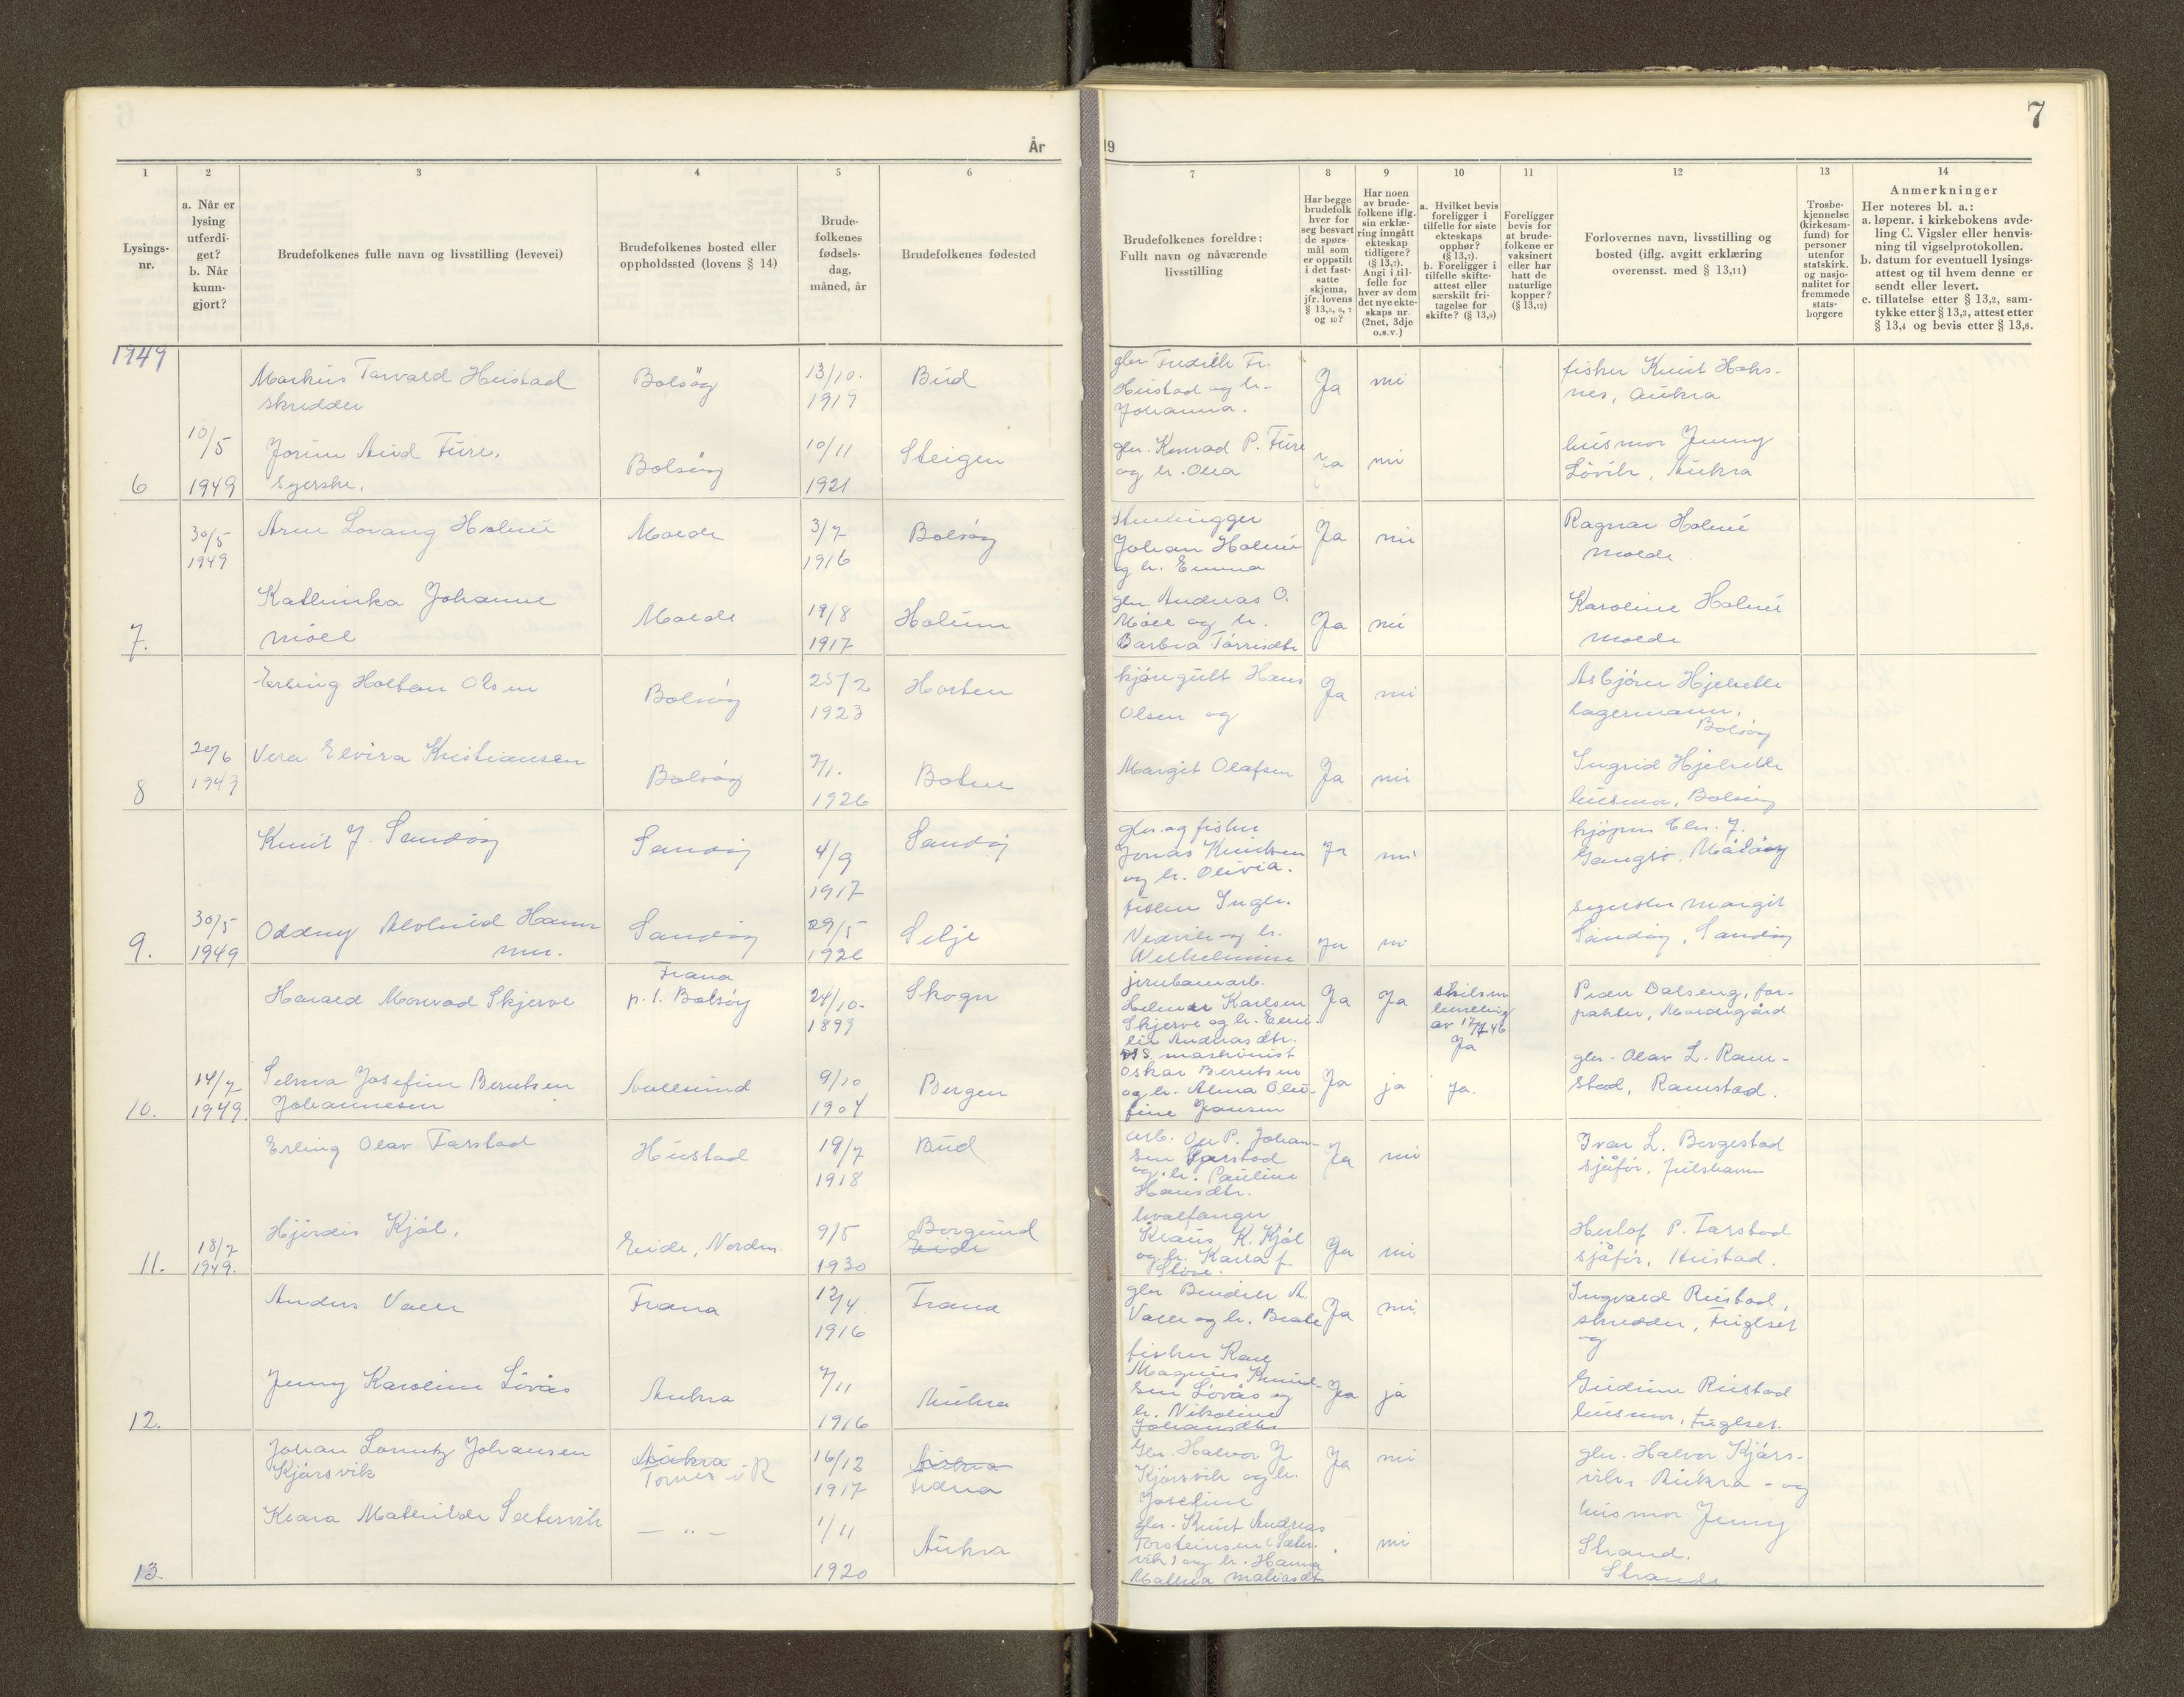 7
År
19
1
2
3
4
5
6
7
8
9
10
11
12
13
14
Lysings-
nr.
a. Når er
lysing
utferdi-
get?
b. Når
kunn-
gjort?
Brudefolkenes fulle navn og livsstilling (levevei)
Brudefolkenes bosted eller
oppholdssted (lovens § 14)
Brude-
folkenes
fødsels-
dag,
måned, år
Brudefolkenes fødested
Brudefolkenes foreldre:
Fullt navn og nåværende
livsstilling
Har begge
brudefolk
hver for
seg besvart
de spørs-
mål som
er oppstilt
i det fast-
satte
skjema,
jfr. lovens
§ 13,5, 6, 7
og 10?
Har noen
av brude-
folkene iflg.
sin erklæ-
ring inngått
ekteskap
tidligere?
(§ 13,7).
Angi i til-
felle for
hver av dem
det nye ekte-
skaps nr.
(2net, 3dje
o.s.v.)
a. Hvilket bevis
foreligger i
tilfelle for siste
ekteskaps
opphør?
(§ 13,7).
b. Foreligger i
tilfelle skifte-
attest eller
særskilt fri-
tagelse for
skifte? (§ 13,9)
Foreligger
bevis for
at brude-
folkene er
vaksinert
eller har
hatt de
naturlige
kopper?
(§ 13,12)
Forlovernes navn, livsstilling og
bosted (iflg. avgitt erklæring
overensst. med § 13,11)
Trosbe-
kjennelse
(kirkesam-
fund) for
personer
utenfor
statskirk.
og nasjo-
nalitet for
fremmede
stats-
borgere
Anmerkninger
Her noteres bl. a.:
a. løpenr. i kirkebokens avde-
ling C. Vigsler eller henvis-
ning til vigselprotokollen.
b. datum for eventuell lysings-
attest og til hvem denne er
sendt eller levert.
c. tillatelse etter § 13,2, sam-
tykke etter § 13,3, attest etter
§ 13,4 og bevis etter § 13,8.
1949
Markus Torvald Hustad
skredder
Bolsöy
13/10.
1919
Bud
Hustad og h.
Johanna.
Ja
nei
fisker Knut Hoks-
nes, Aukra
6
10/5
1949
Jorun Fure,
syerske.
Bolsöy
10/11
1921
Steigen
gbr. Konrad P. Fure
og h. Olea
nei
husmor Jenny
Lövik, Aukra
7.
30/5
1949
Arne Lovang Holmé
Molde
3/7
1916
Bolsöy
Johan Holmé
og h. Emma
Ja
nei
Ragnar Holmé
Molde
Kathinka Johanne
Möll
Molde
19/8
1917
Holum
gbr. Andreas O.
Möll og h.
Barbra Törrisdtr.
Ja
nei
Karoline Holmé
Molde
8
20/6
1949
Erling Holtan Olsen
Bolsöy
25/2
1923
Horten
Hans
Olsen og
Ja
nei
Asbjörn Hjelsette
lagermann,
Bolsöy
Vera Elvira Kristiansen
Bolsöy
7/1.
1926
Botne
Margit Olafsen
Ja
nei
Ingrid Hjelsette
husmor, Bolsöy
9.
30/5
1949
Knut J. Sandöy
Sandöy
4/9
1917
Sandöy
gbr. og fisker
Jonas Knutsen
og h. Olivia.
Ja
nei
Gangsö, Målöy
Oddny Alvhild Ham-
nen.
Sandöy
29/5
1926
Selje
fisker Ingbr.
Nedvik og h.
Wilhelmine
Ja
nei
syerske Margit
Sandöy, Sandöy
10.
14/7
1949.
Harald Monrad Skjerve
Fræna
p.t. Bolsöy
24/10.
1899
Skogn
jernbanearb.
Helmer Karlsen
Skjerve og h. Emi-
lie Andreasdtr.
Ja
Ja
skilsm
bevilling
av 17/7 46
Ja
Peder Dalseng, for-
pakter, Moldegård
Selma Josefine Berntsen
Johannesen
Vallsund
9/10
1904
Bergen
maskinist
Oskar Berntsen
og h. Alma Olu-
fine Jansen
Ja
ja
ja.
gbr. Olav L. Ram-
stad, Ramstad.
11.
18/7
1949.
Erling Olav Tarstad
Hustad
19/7
1918
Bud
arb. Ole P. Johan-
sen Tarstad
og h. Pauline
Hansdtr.
Ja
nei
Ivar L. Bergestad
sjåför, Julshamn
Hjördis Kjöl.
Eide, Nordm.
9/5
1930
Borgund
Eide
hvalfanger
Klaus K. Kjöl
og h. Karla f.
Ja
nei
Herlof P. Tarstad
sjåför, Hustad.
12.
Anders Valle
Fræna
12/4.
1916
Fræna
gbr Bendik A.
Valle og h. Beate
Ja
nei
Ingvald Rustad,
skredder, Fuglset
og
Jenny Karoline Lövås
Aukra
7/11
1916
Aukra
fisker Karl
Magnus Knud-
sen Lövås og
h. Nikoline
Johansdtr
Ja
ja
Gudrun Rustad
husmor, Fuglset.
13.
Johan Lorentz Johansen
Kjörsvik
Aukra
Tornes i R
16/12
1917
Aukra
Fræna
Gbr. Halvor J
Kjörsvik og h.
Josefine
Ja
nei
gbr. Halvor Kjörs-
vik, Aukra - og
Klara Mathilde Sætervik
— „ —
1/11
1920
Aukra
gbr. Knut Andreas
Torsteinsen (Sæter-
vik) og h. Hanna
nei
husmor Jenny
Strand,
Strande